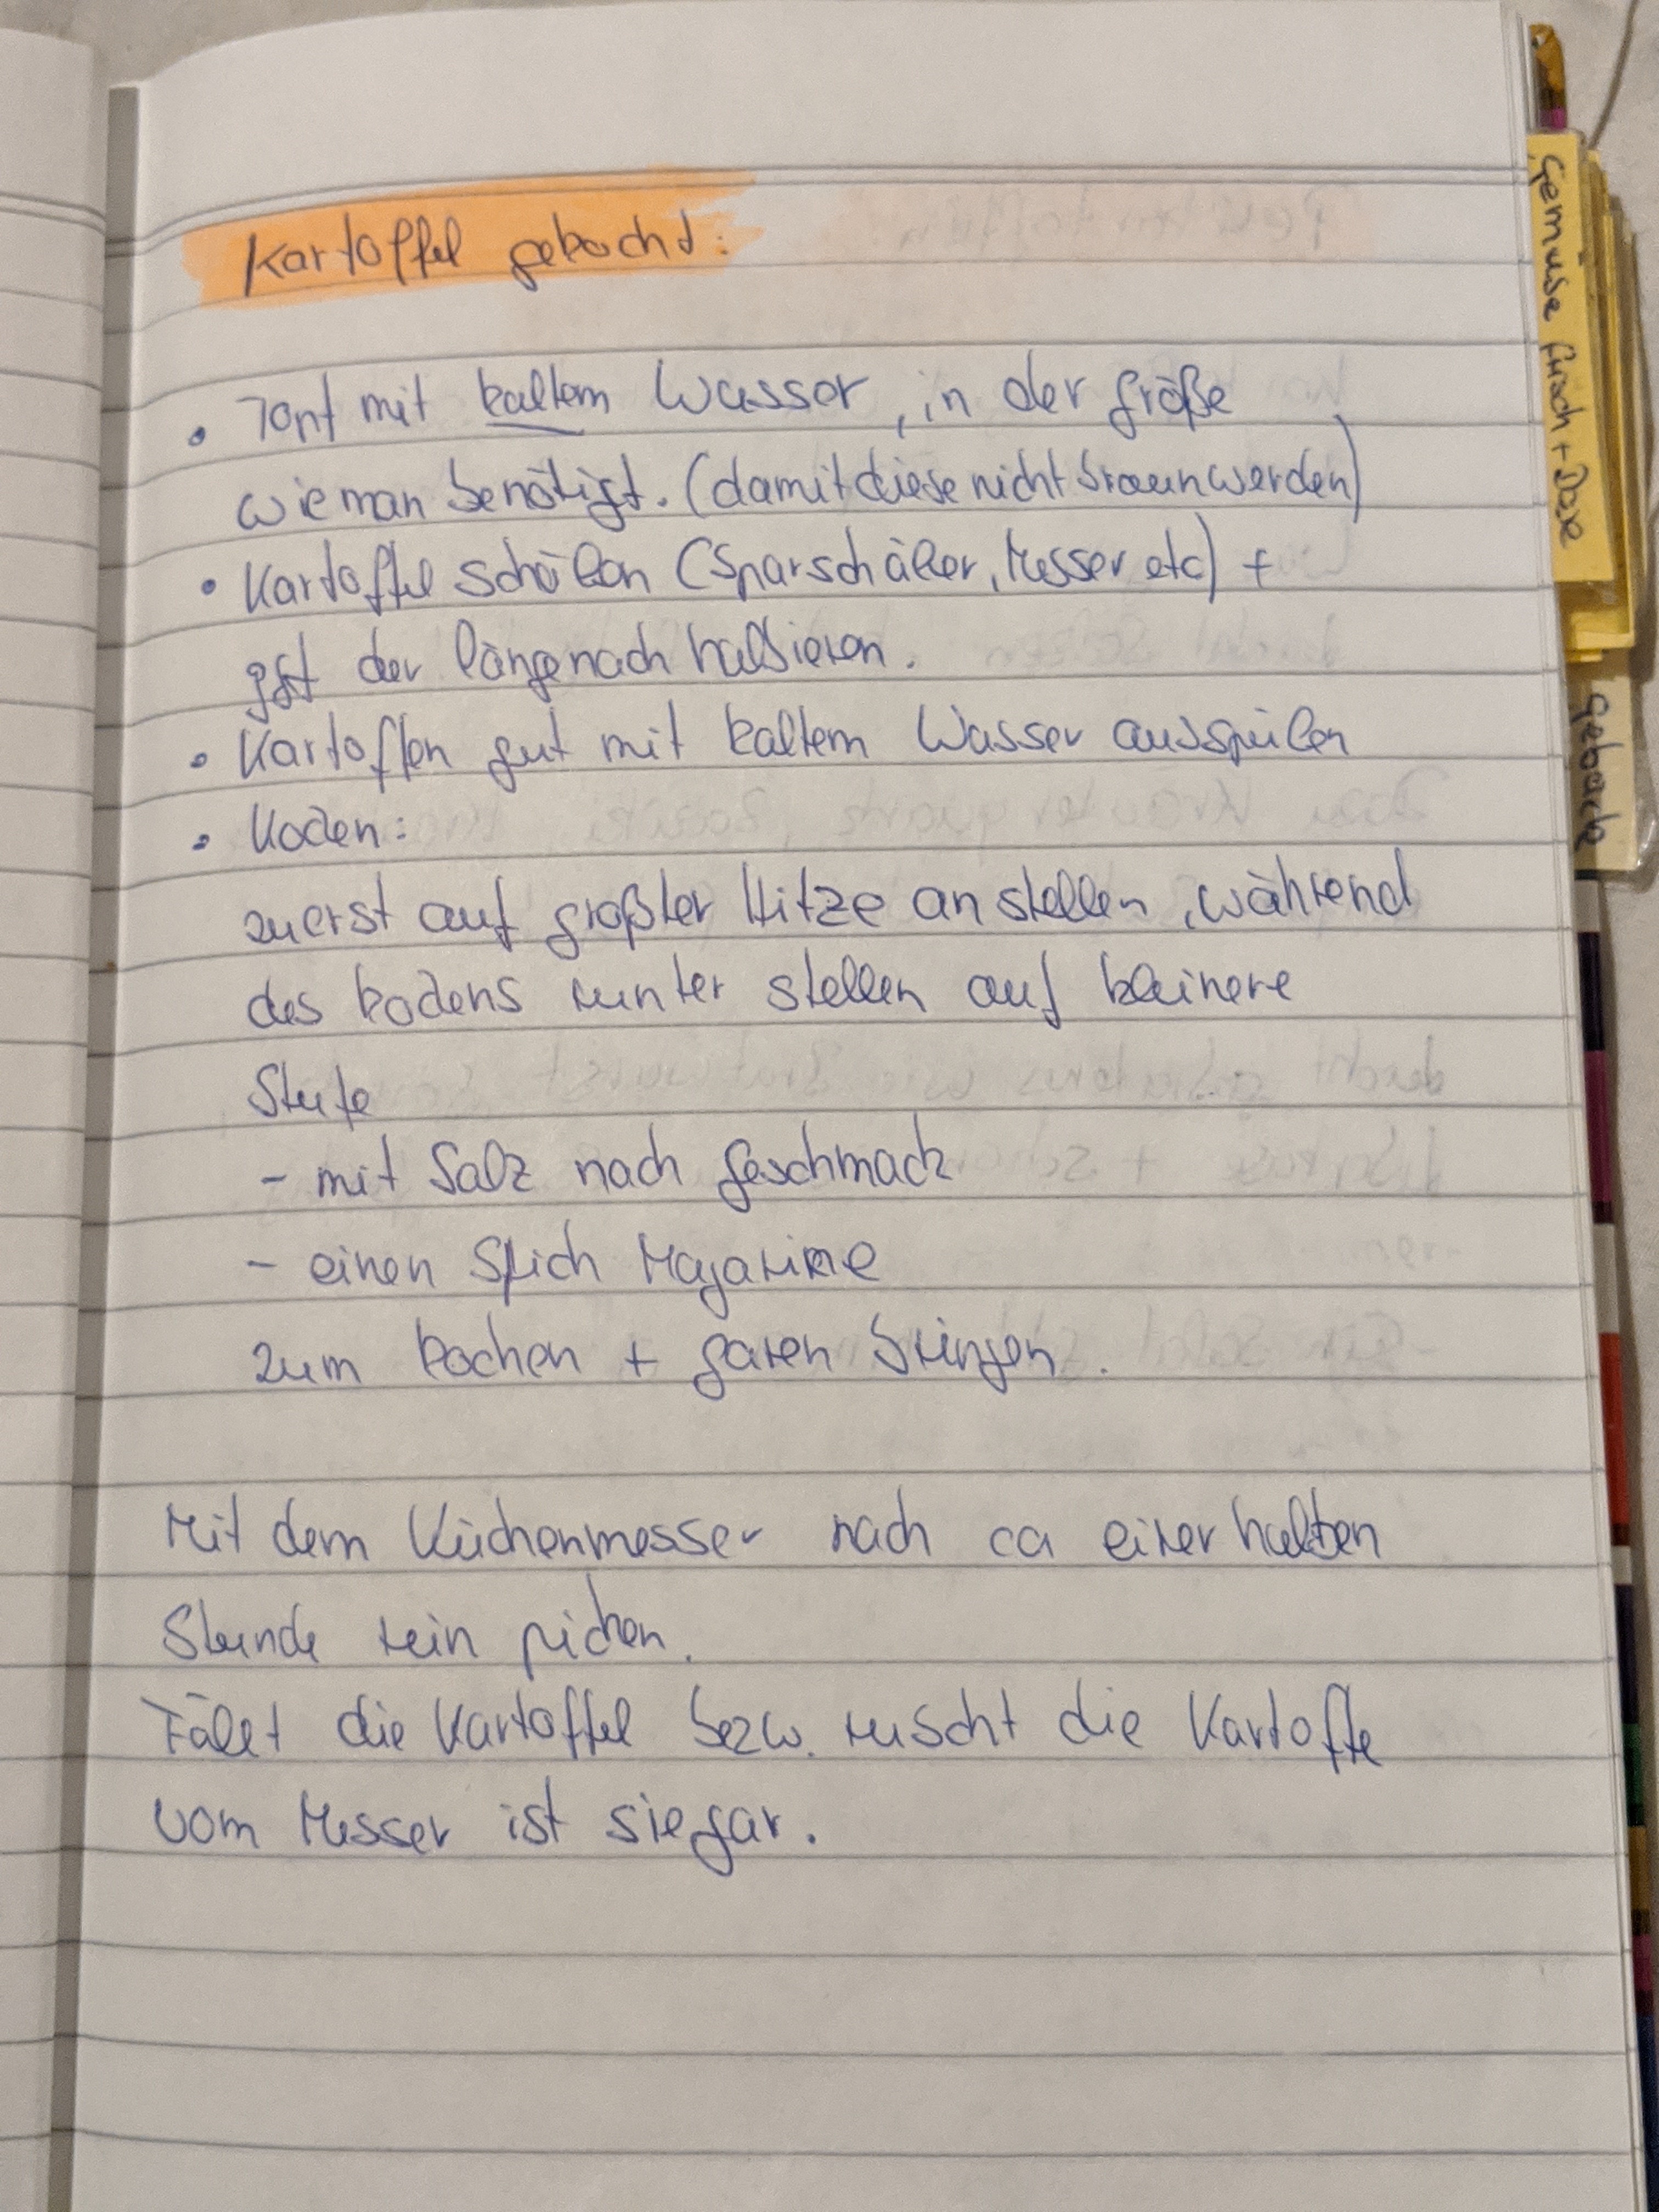 Kartoffel gekocht:
• Topf mit kaltem Wasser, in der größe
wie man benötigt. (damit diese nicht braun werden)
• Kartoffel schälen (Sparschäler, Messer etc) +
ggf der länge nach halbieren.
• Kartoffen gut mit kaltem Wasser ausspülen
• Kochen:
zuerst auf großter Hitze an stellen, während
des kochens runter stellen auf kleinere
Stufe
- mit Salz nach geschmack
- einen Stich Magarine
zum kochen + garen bringen.
Mit dem Küchenmesser nach ca einer halben
Stunde rein picken.
Fällt die Kartoffel bezw. ruscht die Kartoffe
vom Messer ist sie gar.
Gemüse frisch + Dose
Gebäck